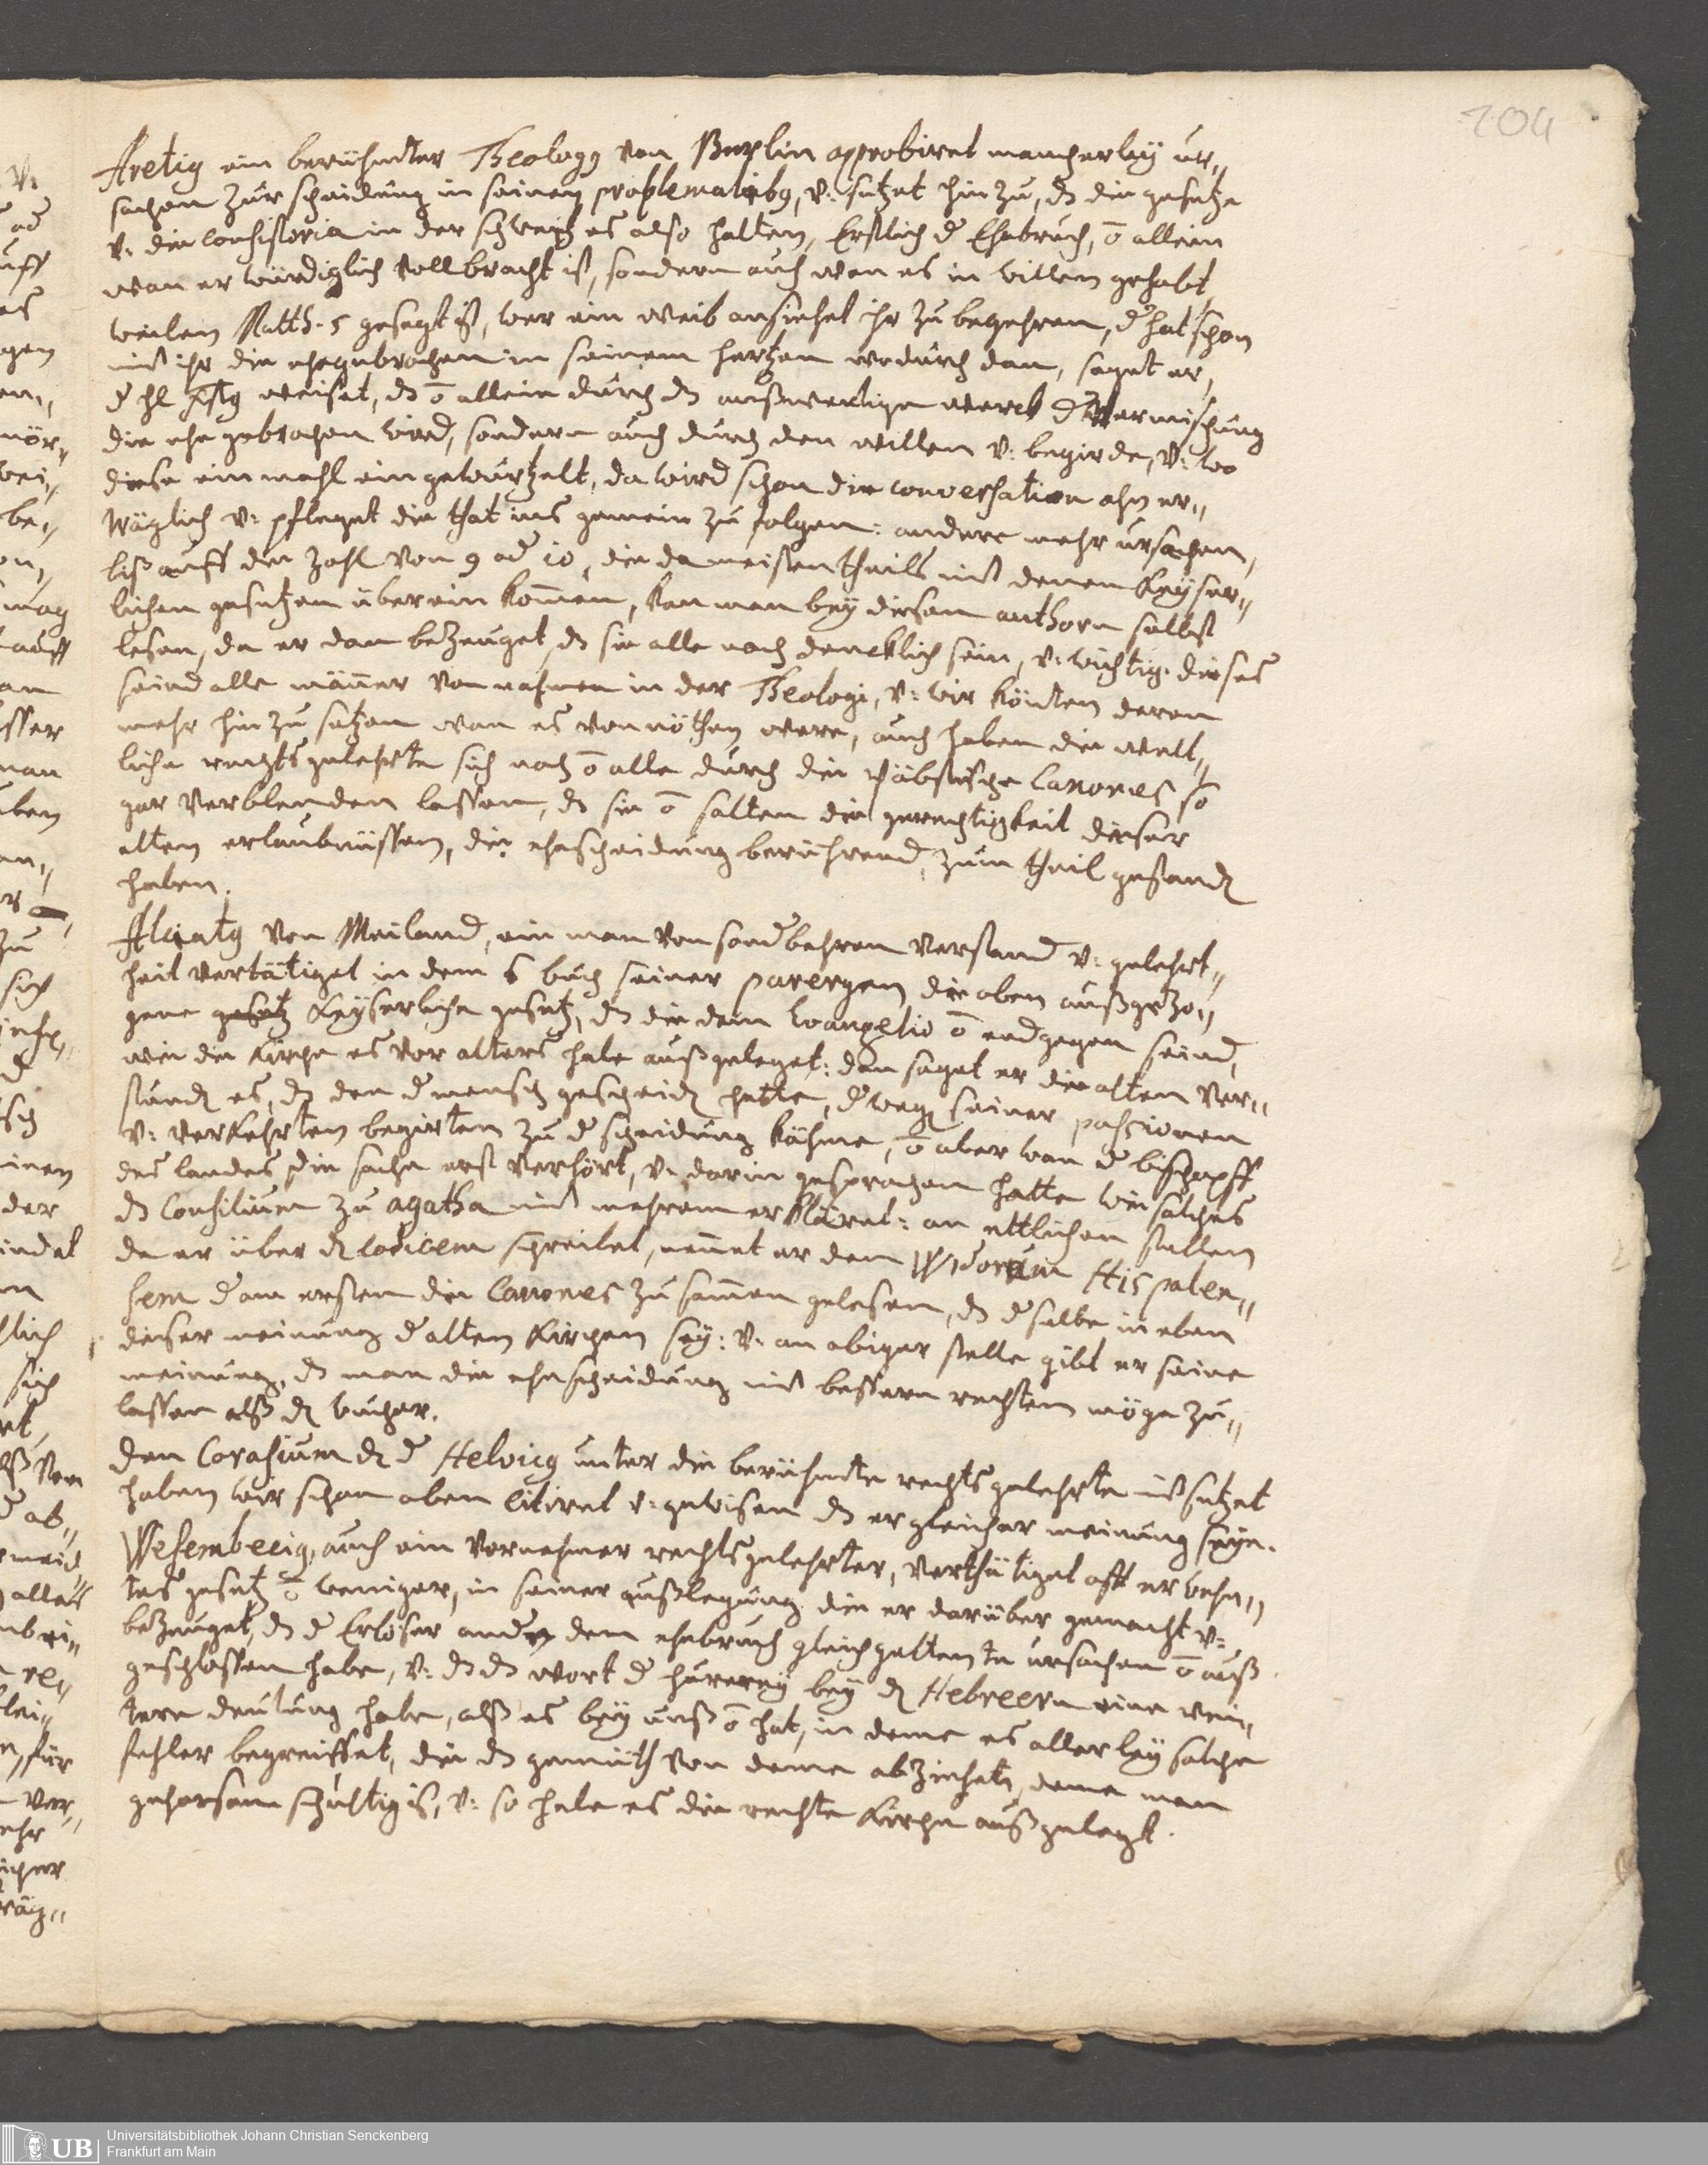 104
Aretig ein berühmter Theologg von Bern approbiret mancherley ur„
sachen zur scheidung in seinen problematibg, v: setzet hinzu, dz die gesetze
v: die consistoria in der schweitz es also halten, Erstlich d Ehebruch, ō allein
wan er würdiglich vollbracht ist, sondern auch wan es in willen gehabt
weilen Matth. 5 gesagt ist, wer ein weib ansiehet ihr zu begehren, d hat schon
mit ihr die ehe gebrochen in seinem hertzen wodurch dan, saget er,
d hl weiset, dz ō allein durch dz außwertige werck d vermischung
die ehe gebrochen wird, sondern auch durch den willen v: begirde, v: wo
diese einmahl eingewurtzelt, da wird schon die conversation ohn er„
träglich v: pfleget die that ins gemein zu folgen: andere mehr ursachen,
biß auff die zahl von 9 od 10, die da meistentheils mit denen Keyser„
lichen gesetzen überein kommen, kan man bey diesem authorn selbst
lesen, da er dan bezeuget dz sie alle nach dencklich sein, v: wichtig. dieses
seind alle männer von nahmen in der Theologi, v: wir könten deren
mehr hinzu setzen wan es von nöthen were, auch haben die welt„
liche rechtsgelehrte sich noch ō alle durch die Päbstische Canones so
gar verblenden lassen, dz sie ō solten die gerechtigkeit dieser
alten erlaubnüssen, die ehescheidung berührend, zum theil gestand
haben.
Alciatg von Meiland, ein man von sond behrem verstand v: gelehrt„
heit vertätiget in dem 6 buch seiner parergen die oben außgezo„
gene gesetz Keyserliche gesetz, dz die dem Evangelio ō endgegen seind,
wie die Kirche es vor alters habe außgeleget: dan saget er die alten ver„
stand es, dz den d mensch gescheid hette, d weg seiner passionen
v: verkehrten begirten zu d scheidung kähme, ō aber wan d bischopff
des landes die sache erst verhört, v: darin gesprochen hatte wie solches
dz Consilium zu agatha mit mehrem erkläret: an ettlichen stellen
da er über d codicem schreibet, nennet er dem Isidorum Hispalen„
sem d am ersten die Canones zusammen gelesen, dz dselbe in eben
dieser meinung d alten Kirchen sey: v: an obiger stelle gibt er seine
meinung, dz man die ehescheidung mit bessern rechten möge zu„
lassen alß d wucher.
Den Corasium d d Helvicg unter die berühmte rechtsgelehrte mitsetzet
haben wir schon oben citiret v: gewisen dz er gleicher meinung seye.
Wesembecig, auch ein vornehmer rechtsgelehrter, verthätiget offt erwehn„
tes gesetz ō weniger, in seiner außlegung die er darüber gemacht v:
bezeuget, dz d Erlöser andre dem ehebruch gleich geltente ursachen ō auß
geschlossen habe, v: dz dz wort d hurerey bey d Hebreern eine wei„
tere deutung habe, alß es bey unß ō hat, in deme es allerley solche
fehler begreiffet, die dz gemüth von deme abziehet, deme man
gehorsam schultig is, v: so habe es die rechte Kirche außgelegt.
UB
Universitätsbibliothek Johann Christian Senckenberg
Frankfurt am Main